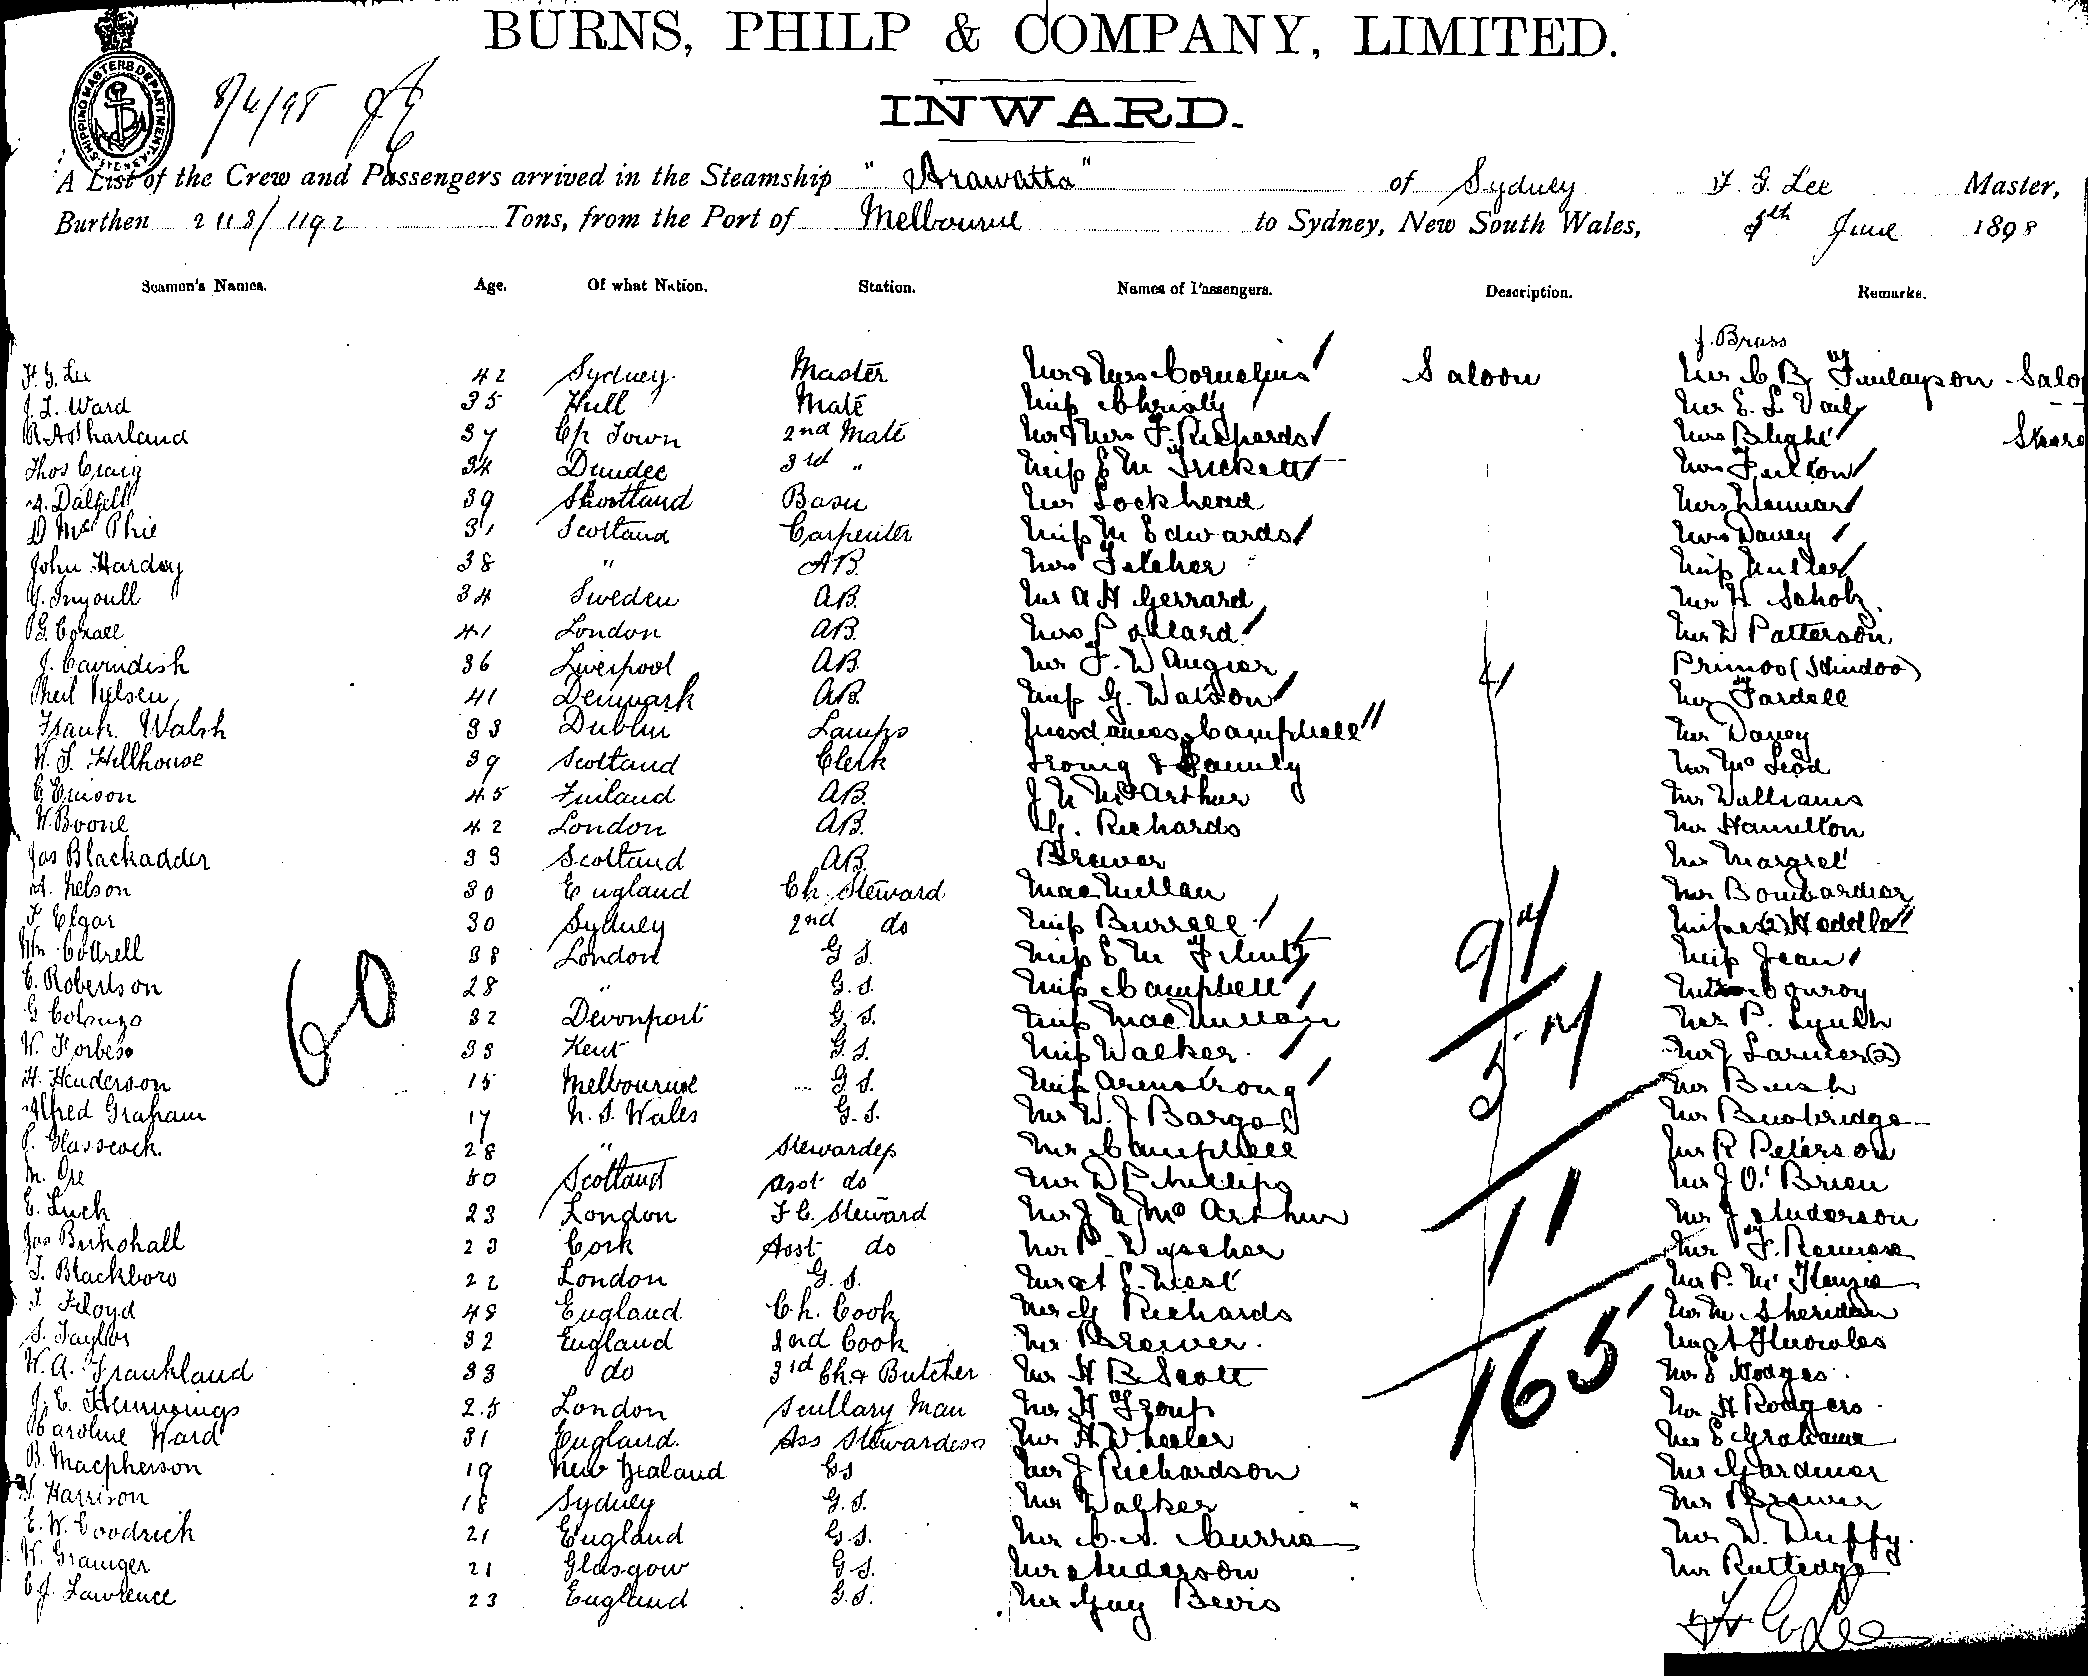 BURNS, PHILP & COMPANY, LIMITED.
INWARD.
SHIPPING MASTERS DEPARTMENT
8/6/98
A List of the Crew and Passengers arrived in the Steamship "Arawatta" of Sydney F. G. Lee Master,
Burthen 2113/1192 Tons, from the Port of Melbourne to Sydney, New South Wales, 8th June 1898
Seamen's Names. Age. Of what Nation. Station. Names of Passengers. Description. Remarks.
J. Brass
F. G. Lee 42 Sydney Master Mr & Mrs Cornelius Saloon Mr C B Finlayson Saloo
J. L. Ward 35 Hull Mate Miss Christy Mr E. L. Vail
37 Cp Town 2nd Mate Mr & Mrs F. Richards Mrs Blight
Thos Craig 34 Dundee 3rd " Miss E M Trickett Mrs Fulton
A. Dalzell 39 Scotland Mr Lockhead
D McPhie 31 Scotland Carpenter Miss M Edwards Mrs Davey
John Harday 38 " AB. Mrs Fitcher Miss Muller
34 Sweden AB. Mr A H Gerrard Mr H Scholz
41 London AB. Mrs Pollard Mr W Patterson
J. Cavindish 36 Liverpool AB. Mr F. W Augier Primoo (Hindoo)
41 Denmark AB. Miss G. Watson Mr Fardell
Frank Walsh 33 Dublin Lamps Mesdames Campbell Mr Davey
W. S. Hillhouse 39 Scotland Clerk Irving & Family Mr McLeod
E. Erison 45 Finland AB. J N McArthur Mr Williams
W. Boone 42 London AB. G. Richards Mr Hamilton
Jas Blackadder 33 Scotland AB. Brewer Mr Margret
A. Nelson 30 England Ch. Steward MacMillan Mr Bombardier
F Elgar 30 Sydney 2nd do Miss Burrell Misses (2) Heddle
Wm Cottrell 38 London G S. Miss E M Flint Miss Jean
C. Robertson 28 " G. S. Miss Campbell Conroy
32 Devonport G S. Miss MacMillan Mr P. Lynch
W. Forbes 33 Kent G. S. Miss Walker Mr J Larmer (2)
H. Henderson 15 Melbourne G S. Miss Armstrong Mr Bush
Alfred Graham 17 N. S. Wales G. S. Mr W. J Barge Mr Bumbridge
P. Glasscock 28 " Stewardess Mr Campbell Mr R Peterson
M. Orr 50 Scotland Asst do Mr D Phillips Mr J O'Brien
E. Luck 23 London F C. Steward Mr J N McArthur Mr J Anderson
23 Cork Asst do Mr P. Mr F.
T. Blackboro 22 London G. S. West Mr P. McKenzie
T Floyd 48 England Ch. Cook Mr G Richards Mr M Sheridan
S. Taylor 32 England 2nd Cook Mr Brewer. Knowles
W. A. Frankland 33 do 3rd Ck & Butcher Mr H B Scott Mr E Hodges
J. E. Hemmings 25 London Scullary Man Mr H Group Mr H Rodgers
Caroline Ward 31 England Ass Stewardess Mr A Wheeler Mr E Grahame
B. Macpherson 19 New Zealand GS Mr J Richardson Mr Gardiner
Harrison 18 Sydney G. S. Mr Walker Mr Brewer
E. W. Goodrick 21 England G. S. Mr C. A. Currie Mr W. Duffy.
W. Grainger 21 Glasgow G S. Mr Anderson Mr Rutledge
C J. Lawrence 23 England G. S. Mr Guy Bevis
60
97
57
11
165
F G Lee